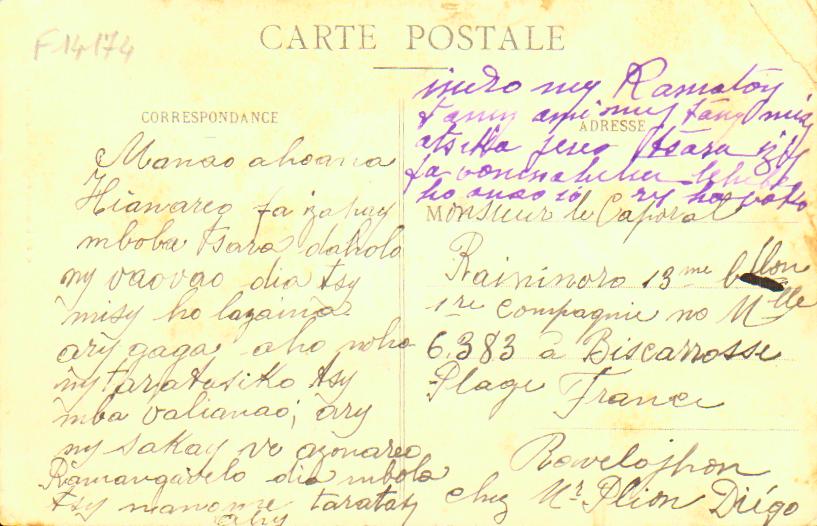 F 14174
CARTE POSTALE
CORRESPONDANCE
Manao ahoana
Hianareo fa izahay
mbola tsara daholo
ny vaovao dia tsy
misy ho lazaina
ary gaga aho noho
ny taratasiko tsy
mba valianao; ary
ny sakay ve azonareo
Ramangavelo dia mbola
tsy manome taratasy
ahy
indro ny Ramatoy
misy
atsika jereo tsara
fa
ho anao io ry
ADRESSE
Monsieur le Caporal
Raininoro 13me bllon
1re Compagnie no Mlle
6.383 à Biscarrosse
Plage France
Ravelojhon
chez Mr. Plion Diégo